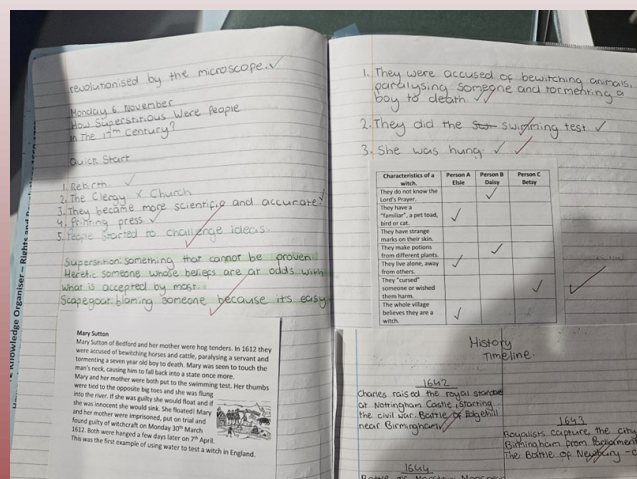 revolutionised by the microscope.
Monday 6 November
How Superstitious Were People
in The 17th Century?
Quick Start
1. Rebirth.
2. The Clergy x Church
3. They became more scientific and accurate
4. Printing press
5. People started to challenge ideas.
Superstition: something that cannot be proven.
Heretic: someone whose beliefs are at odds with
what is accepted by most.
Scapegoat: blaming someone because its easy
Mary Sutton
Mary Sutton of Bedford and her mother were hog tenders. In 1612 they
were accused of bewitching horses and cattle, paralysing a servant and
tormenting a seven year old boy to death. Mary was seen to touch the
man's neck, causing him to fall back into a state once more.
Mary and her mother were both put to the swimming test. Her thumbs
were tied to the opposite big toes and she was flung
into the river. If she was guilty she would float and if
she was innocent she would sink. She floated! Mary
and her mother were imprisoned, put on trial and
found guilty of witchcraft on Monday 30th March
1612. Both were hanged a few days later on 7th April.
This was the first example of using water to test a witch in England.
Knowledge Organiser – Rights and
1. They were accused of bewitching animals,
paralysing someone and tormenting a
boy to death.
2. They did the swimming test.
3. She was hung.
Characteristics of a witch. Person A Elsie Person B Daisy Person C Betsy
They do not know the Lord's Prayer.
They have a "familiar", a pet toad, bird or cat.
They have strange marks on their skin.
They make potions from different plants.
They live alone, away from others.
They "cursed" someone or wished them harm.
The whole village believes they are a witch.
History
Timeline
1642
Charles raised the royal standard
at Nottingham Castle, starting
the civil war. Battle of Edgehill
near Birmingham.
1643
Royalists capture the city
Birmingham from Parliament
The Battle of Newbury
1644